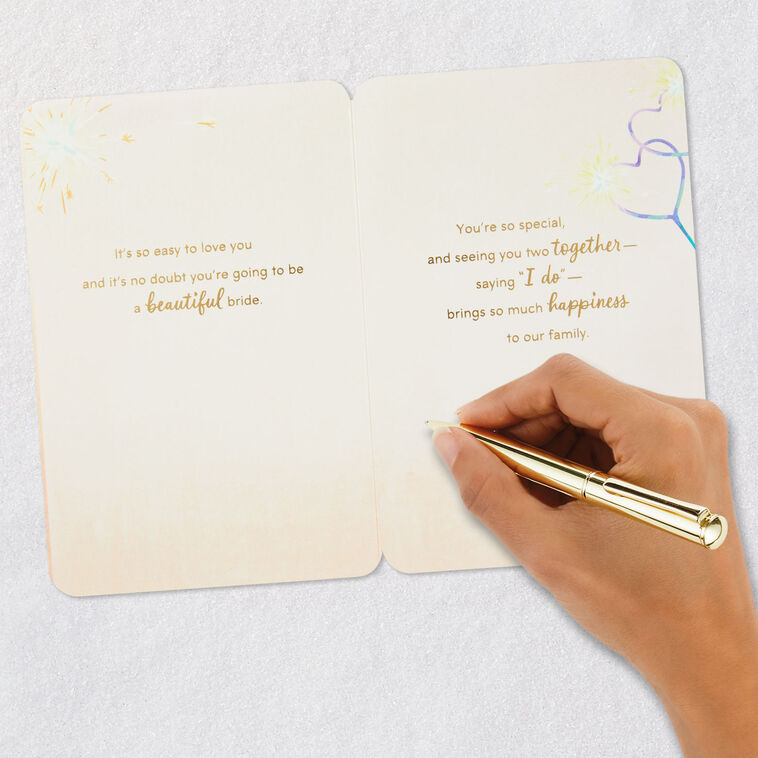 It's so easy to love you
and it's no doubt you're going to be
a beautiful bride.
You're so special,
and seeing you two together—
saying "I do"—
brings so much happiness
to our family.